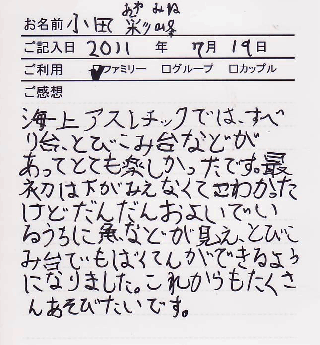 あや みね
お名前 小田 彩峰
ご記入日 2011 年 7月19日
ご利用 ☑ファミリー □グループ □カップル
ご感想
海上アスレチックでは、すべ
り台、とびこみ台などが
あってとても楽しかったです。最
初は下がみえなくてこわかった
けどだんだんおよいでい
るうちに魚などが見え、とびこ
み台でもばくてんができるよう
になりました。これからもたくさ
んあそびたいです。